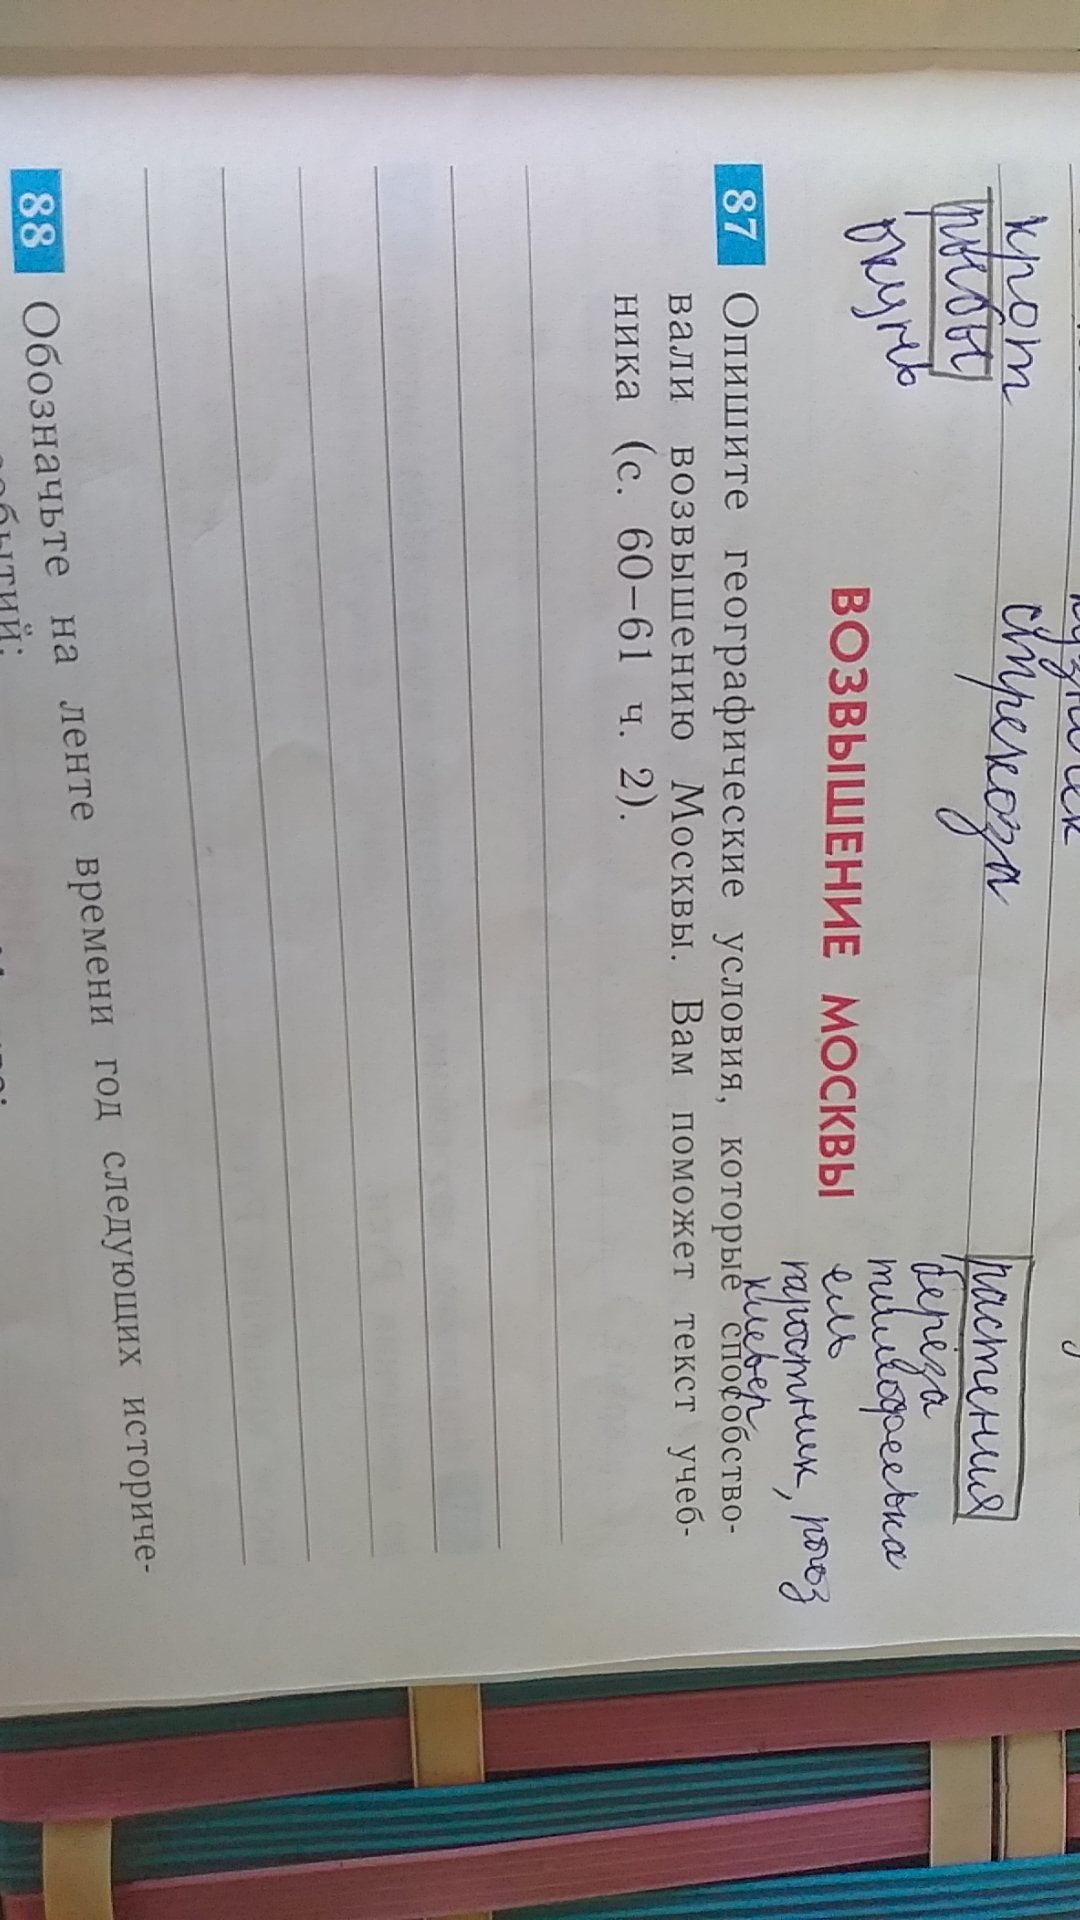 крот
стрекоза
рыбы
окунь
растения
берёза
тимофеевка
ель
тростник, рогоз
клевер
ВОЗВЫШЕНИЕ МОСКВЫ
87 Опишите географические условия, которые способство-
вали возвышению Москвы. Вам поможет текст учеб-
ника (с. 60–61 ч. 2).
88 Обозначьте на ленте времени год следующих историче-
событий: